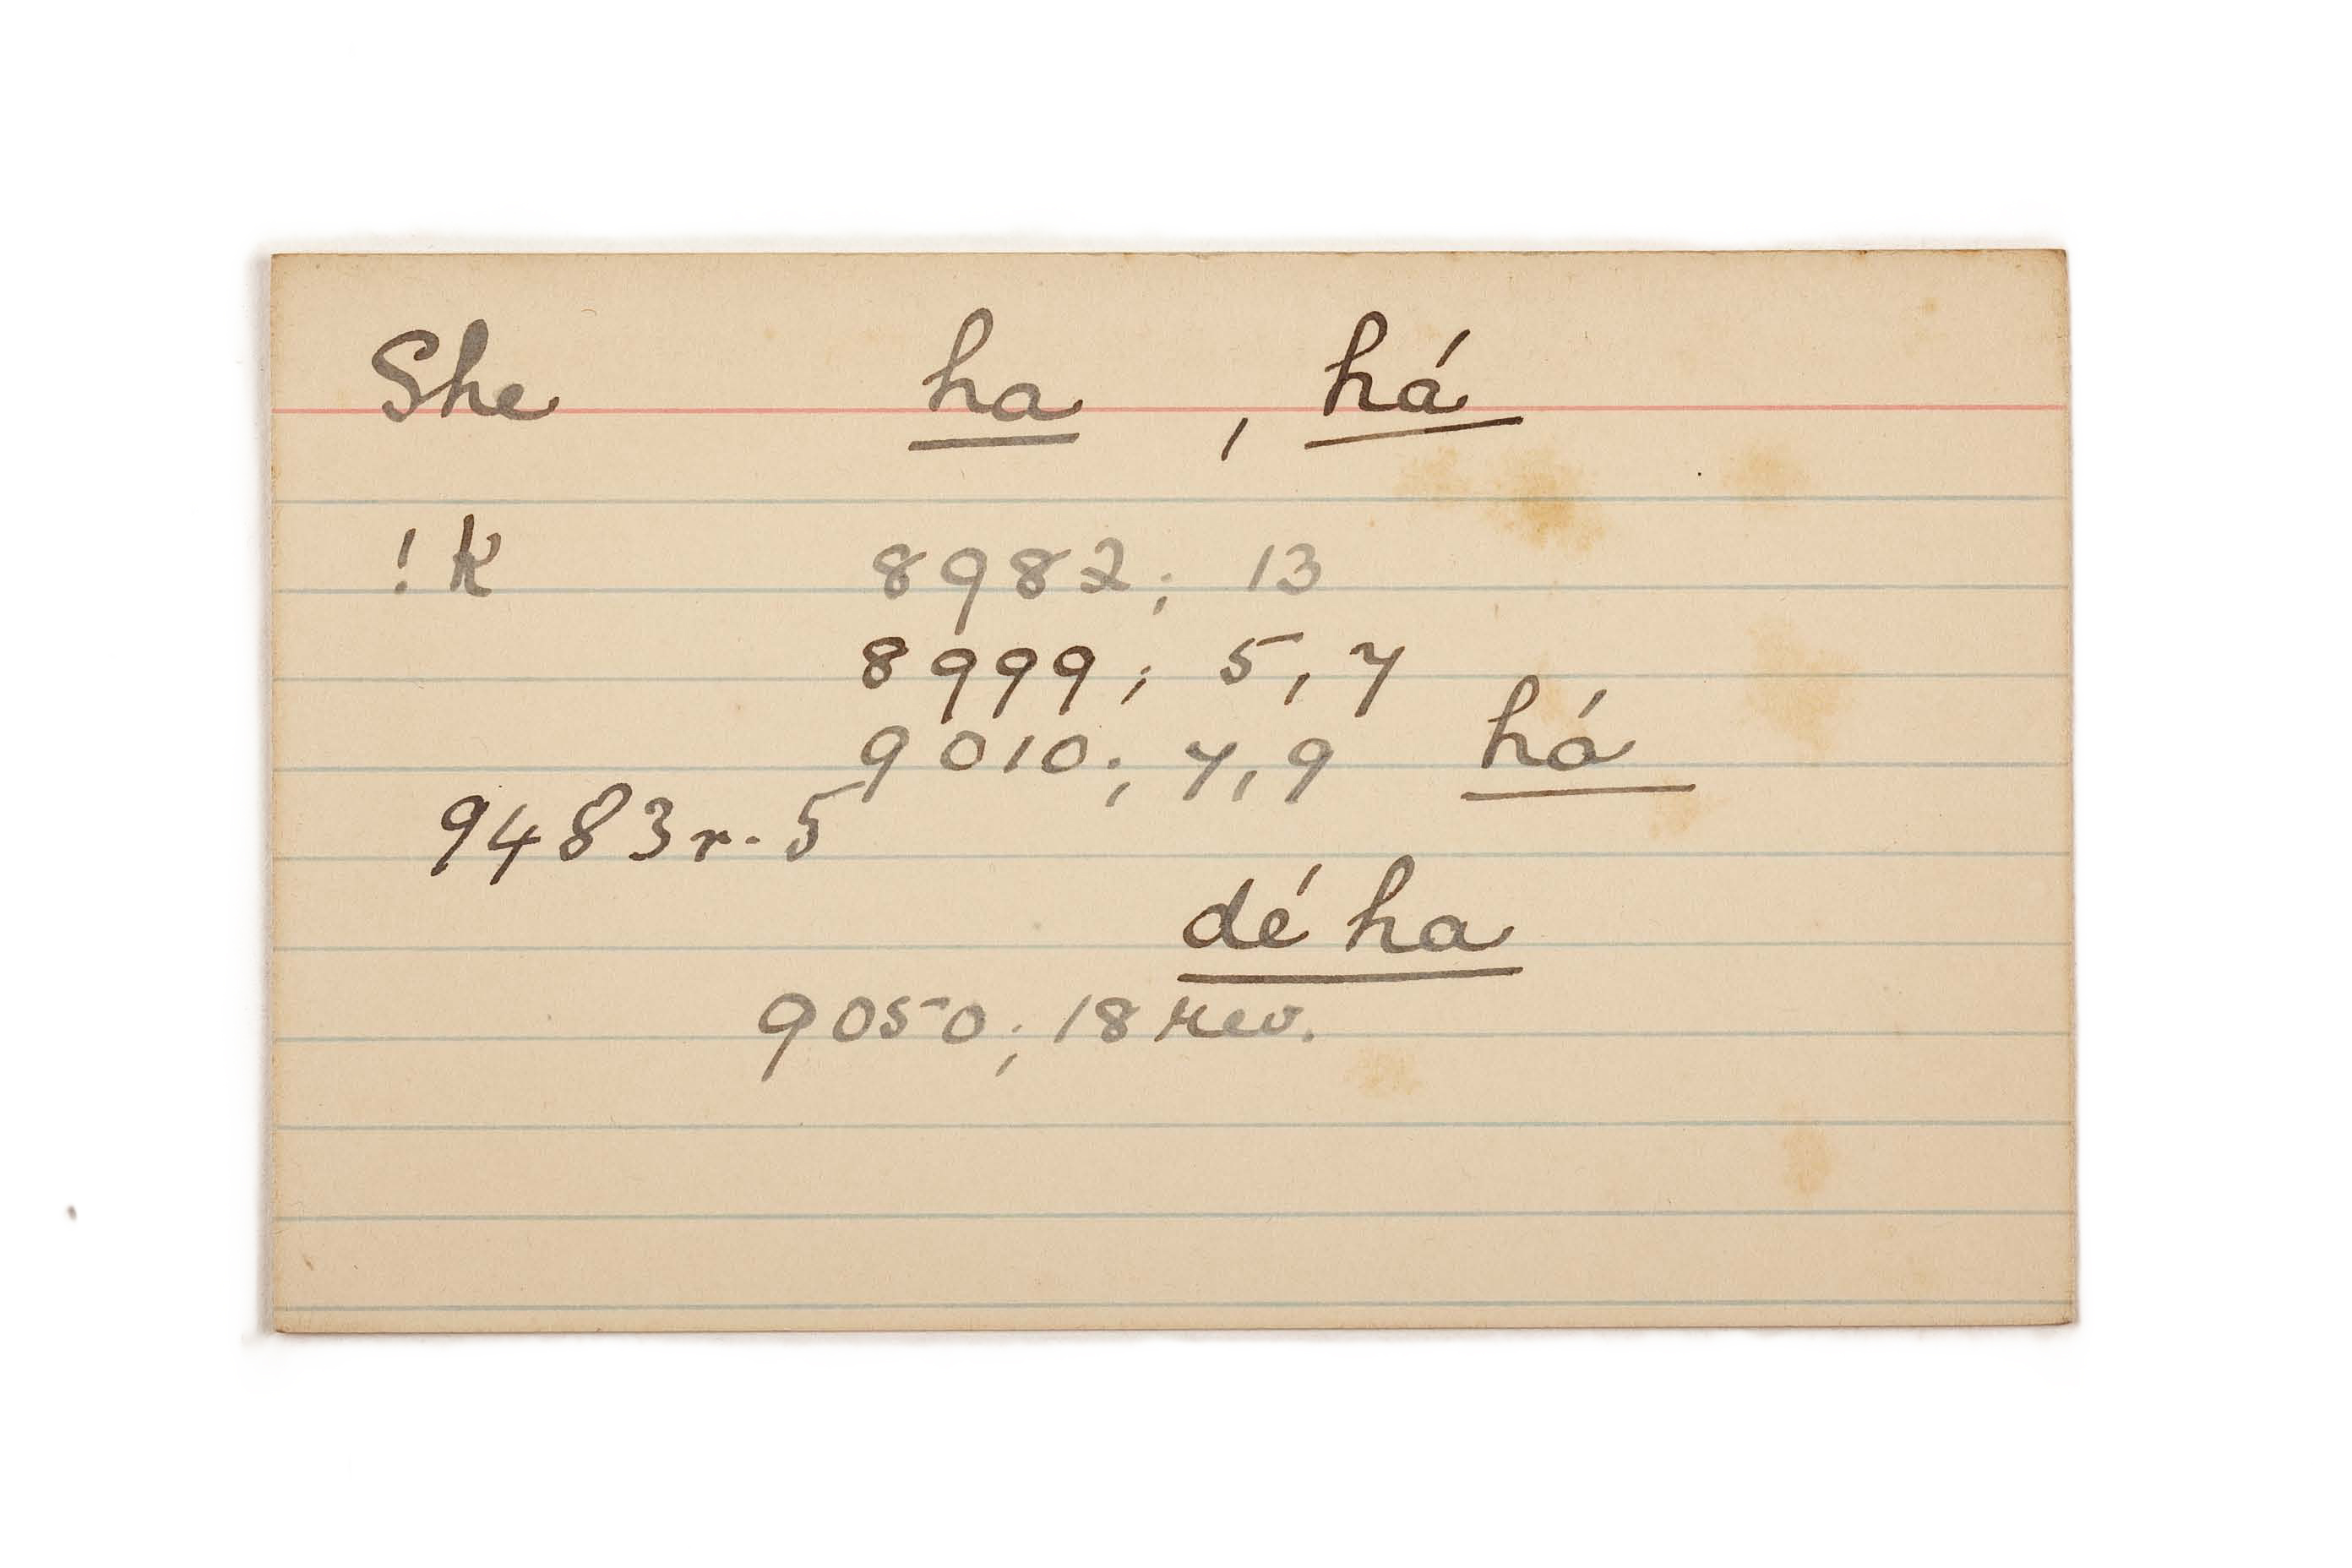 She ha , há
!k 8982; 13
8999; 5, 7
9010; 7, 9 há
9483r. 5
dé ha
9050; 18 rev.